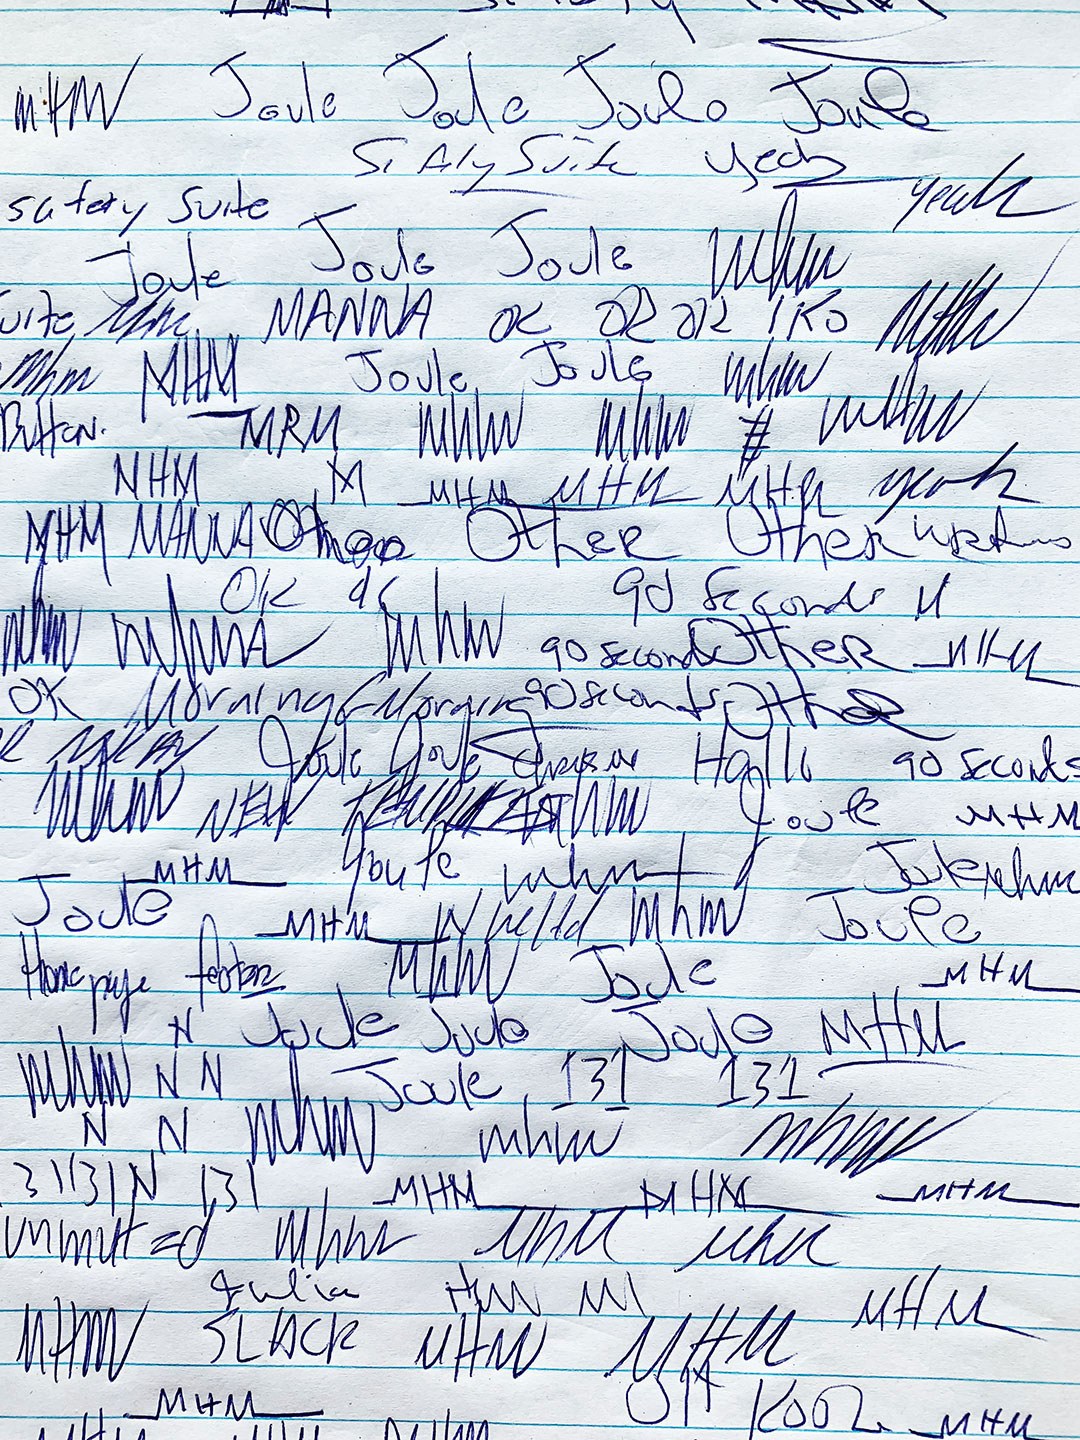 MHM Joule Joule Joule Joule
Suite yeah yeah
Safety Suite
Joule Joule Joule mhm
MANNA OK MHM
mhm MHM Joule Joule mhm
Button. MRM mhm mhm # mhm
NHM M MHM MHM MHR yeah
MHM MANNA Other Other Other
OK 90 Seconds M
mhm mhm 90 seconds Other MHM
OK Morning Morning 90 seconds Other
Joule Joule 90 Seconds
mhm NEW mhm Joule MHM
MHM Joule mhm Joule mhm
Joule MHM mhm Joule
Homepage footer MhM Joule MHM
N Joule Joule Joule MHM
mhm N N Joule 131 131
N N mhm mhm mhm
31131 N 131 MHM MHM MHM
unmuted Mhm MhM mhm
Julia MHM
MHM SLACK MHM MHM
MHM Off MHM